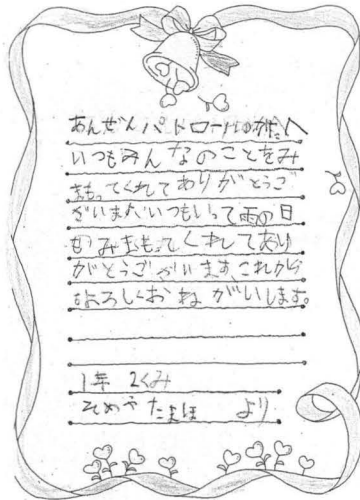 あんぜんパトロールのかたへ
いつもみんなのことをみ
まもってくれてありがとうご
ざいます。いつもいって雨の日
もみまもってくれてあり
がとうございます。これから
もよろしくおねがいします。
1年 2くみ
そめや たまほ より